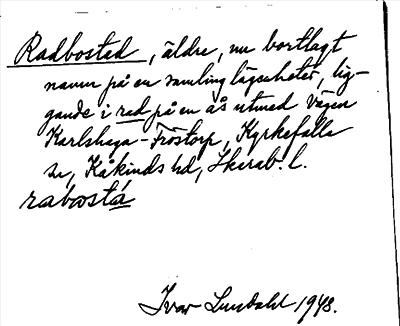 Radbostad, äldre, nu bortlagt
namn på en samling lägenheter, lig-
gande i rad på en ås utmed vägen
Karlshaga - Fröstorp, Kyrkefalla
sn, Kåkinds hd, Skarab. l.
rabostá
Ivar Lundahl 1948.